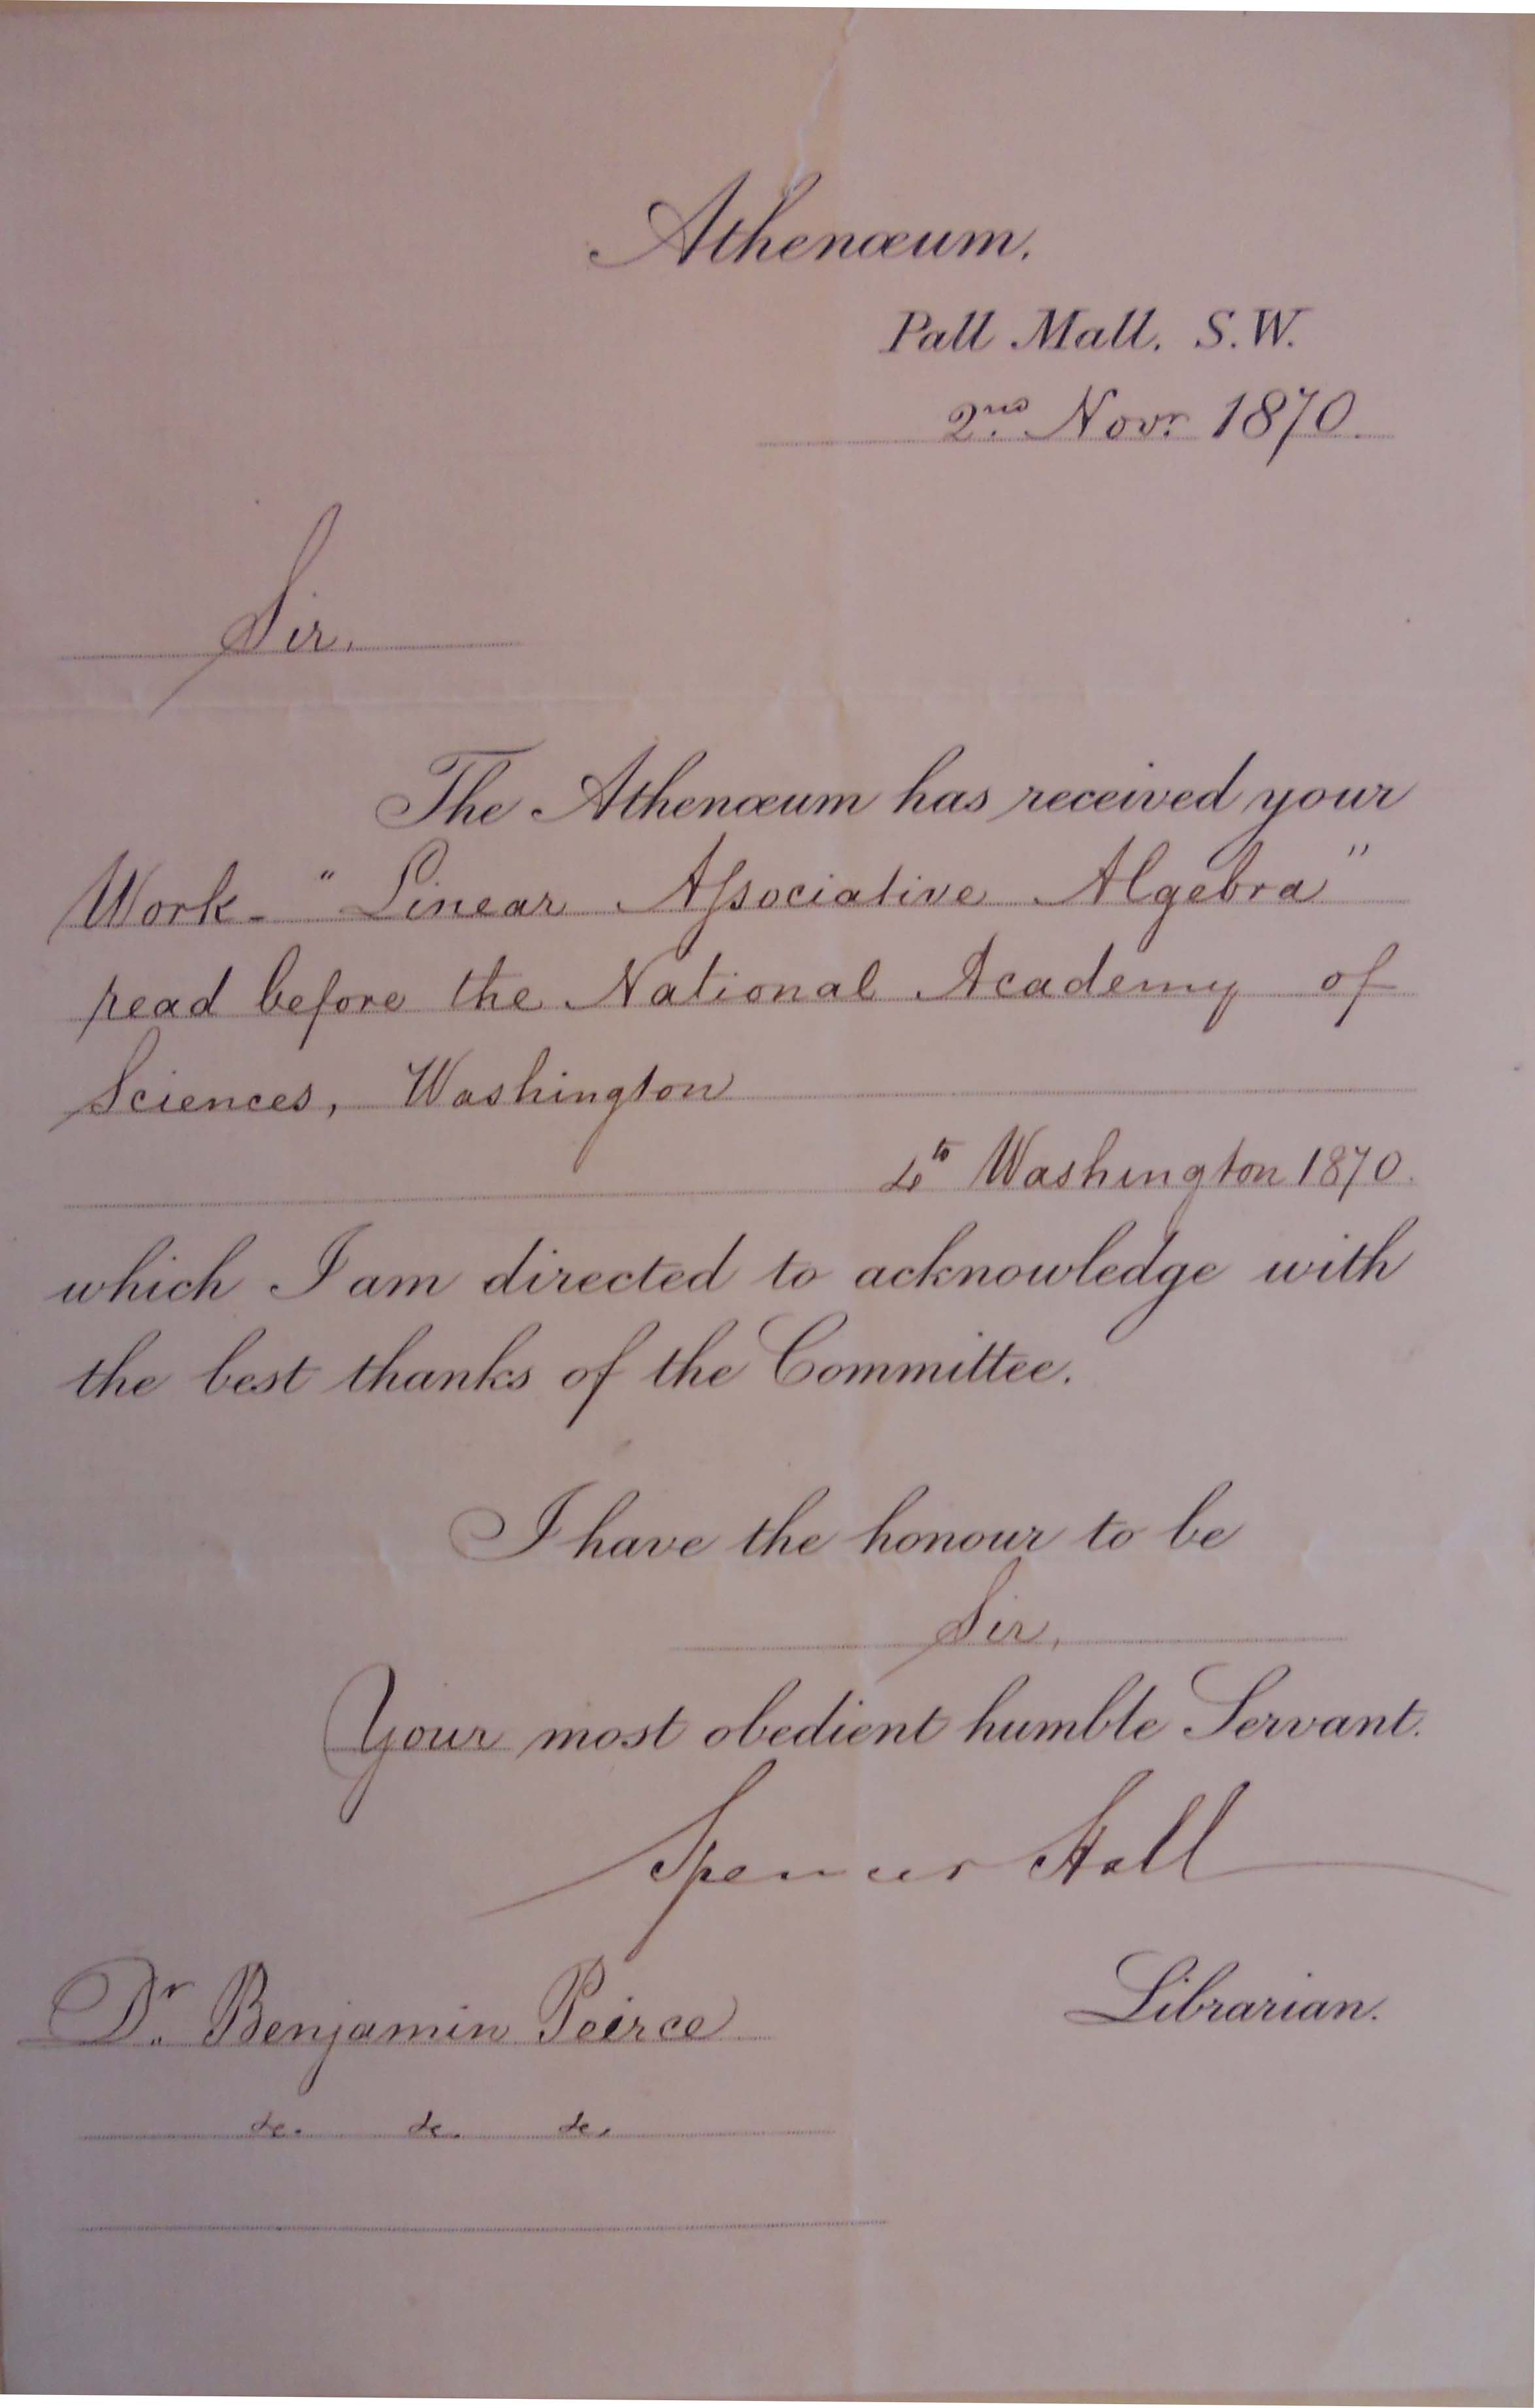 Athenæum,
Pall Mall. S.W.
2nd Novr. 1870.
Sir,
The Athenæum has received your
Work - "Linear Aſsociative Algebra"
read before the National Academy of
Sciences, Washington
4to Washington 1870.
which I am directed to acknowledge with
the best thanks of the Committee.
I have the honour to be
Sir,
Your most obedient humble Servant.
Spencer Hall
Librarian.
Dr. Benjamin Peirce
&c. &c. &c.